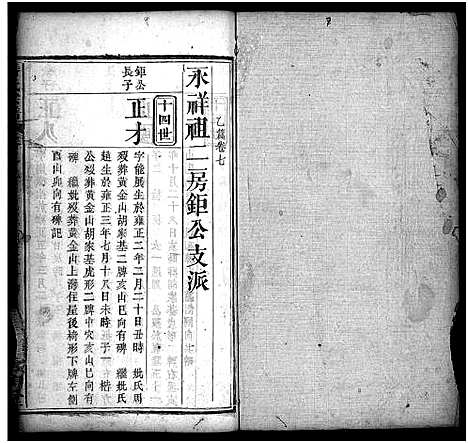 乙篇卷七
永祥祖二房鉅公支派
十四世
鉅公
長子
正才
字能展生於雍正二年二月二十日丑時
歿葬黃金山胡家基二牌亥山巳向有碑 繼妣氏
生於雍正三年七月十八日未時子一楷
公歿葬黃金山胡家基虎形二牌中穴亥山巳向有
碑 繼妣歿葬黃金山上灣住屋後椅形下牌左側
山 向有碑記